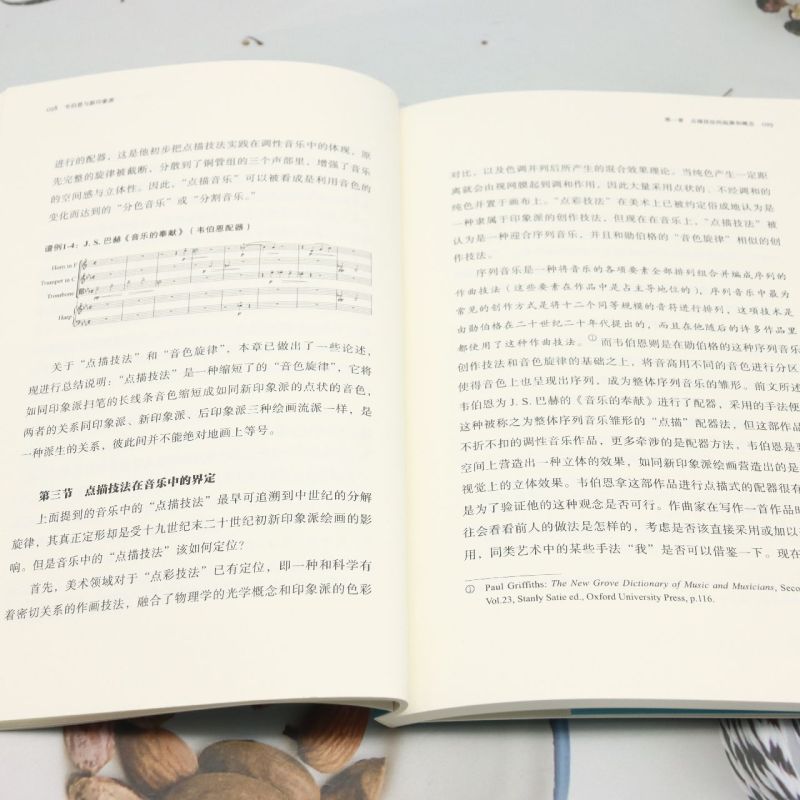 028 韦伯恩与新印象派
进行的配器，这是他初步把点描技法实践在调性音乐中的体现，原
先完整的旋律被截断，分散到了铜管组的三个声部里，增强了音乐
的空间感与立体性。因此，“点描音乐”可以被看成是利用音色的
变化而达到的“分色音乐”或“分割音乐。”
谱例1-4：J. S. 巴赫《音乐的奉献》（韦伯恩配器）
Horn in F
Trumpet in C
Trombone
Harp
关于“点描技法”和“音色旋律”，本章已做出了一些论述，
现进行总结说明：“点描技法”是一种缩短了的“音色旋律”，它将
如同印象派扫笔的长线条音色缩短成如同新印象派的点状的音色，
两者的关系同印象派、新印象派、后印象派三种绘画流派一样，是
一种派生的关系，彼此间并不能绝对地画上等号。
第三节 点描技法在音乐中的界定
上面提到的音乐中的“点描技法”最早可追溯到中世纪的分解
旋律，其真正定形却是受十九世纪末二十世纪初新印象派绘画的影
响。但是音乐中的“点描技法”该如何定位？
首先，美术领域对于“点彩技法”已有定位，即一种和科学有
着密切关系的作画技法，融合了物理学的光学概念和印象派的色彩
第一章 点描技法的起源和概念 029
对比，以及色调并列后所产生的混合效果理论，当纯色产生一定距
离就会由视网膜起到调和作用，因此大量采用点状的、不经调和的
纯色并置于画布上。“点彩技法”在美术上已被约定俗成地认为是
一种隶属于印象派的创作技法，但现在在音乐上，“点描技法”被
认为是一种迎合序列音乐，并且和勋伯格的“音色旋律”相似的创
作技法。
序列音乐是一种将音乐的各项要素全部排列组合并编成序列的
作曲技法（这些要素在作品中是占主导地位的），序列音乐中最为
常见的创作方式是将十二个同等规模的音符进行排列，这项技术是
由勋伯格在二十世纪二十年代提出的，而且在他随后的许多作品里
都使用了这种作曲技法。①而韦伯恩则是在勋伯格的这种序列音乐
创作技法和音色旋律的基础之上，将音高用不同的音色进行分区
使得音色上也呈现出序列，成为整体序列音乐的雏形。前文所述
韦伯恩为 J. S. 巴赫的《音乐的奉献》进行了配器，采用的手法便
这种被称之为整体序列音乐雏形的“点描”配器法，但这部作品
不折不扣的调性音乐作品，更多牵涉的是配器方法，韦伯恩是要
空间上营造出一种立体的效果，如同新印象派绘画营造出的是
视觉上的立体效果。韦伯恩拿这部作品进行点描式的配器很有
是为了验证他的这种观念是否可行。作曲家在写作一首作品时
往会看看前人的做法是怎样的，考虑是否该直接采用或加以
用，同类艺术中的某些手法“我”是否可以借鉴一下。现在
① Paul Griffiths: The New Grove Dictionary of Music and Musicians, Seco
Vol.23, Stanly Satie ed., Oxford University Press, p.116.